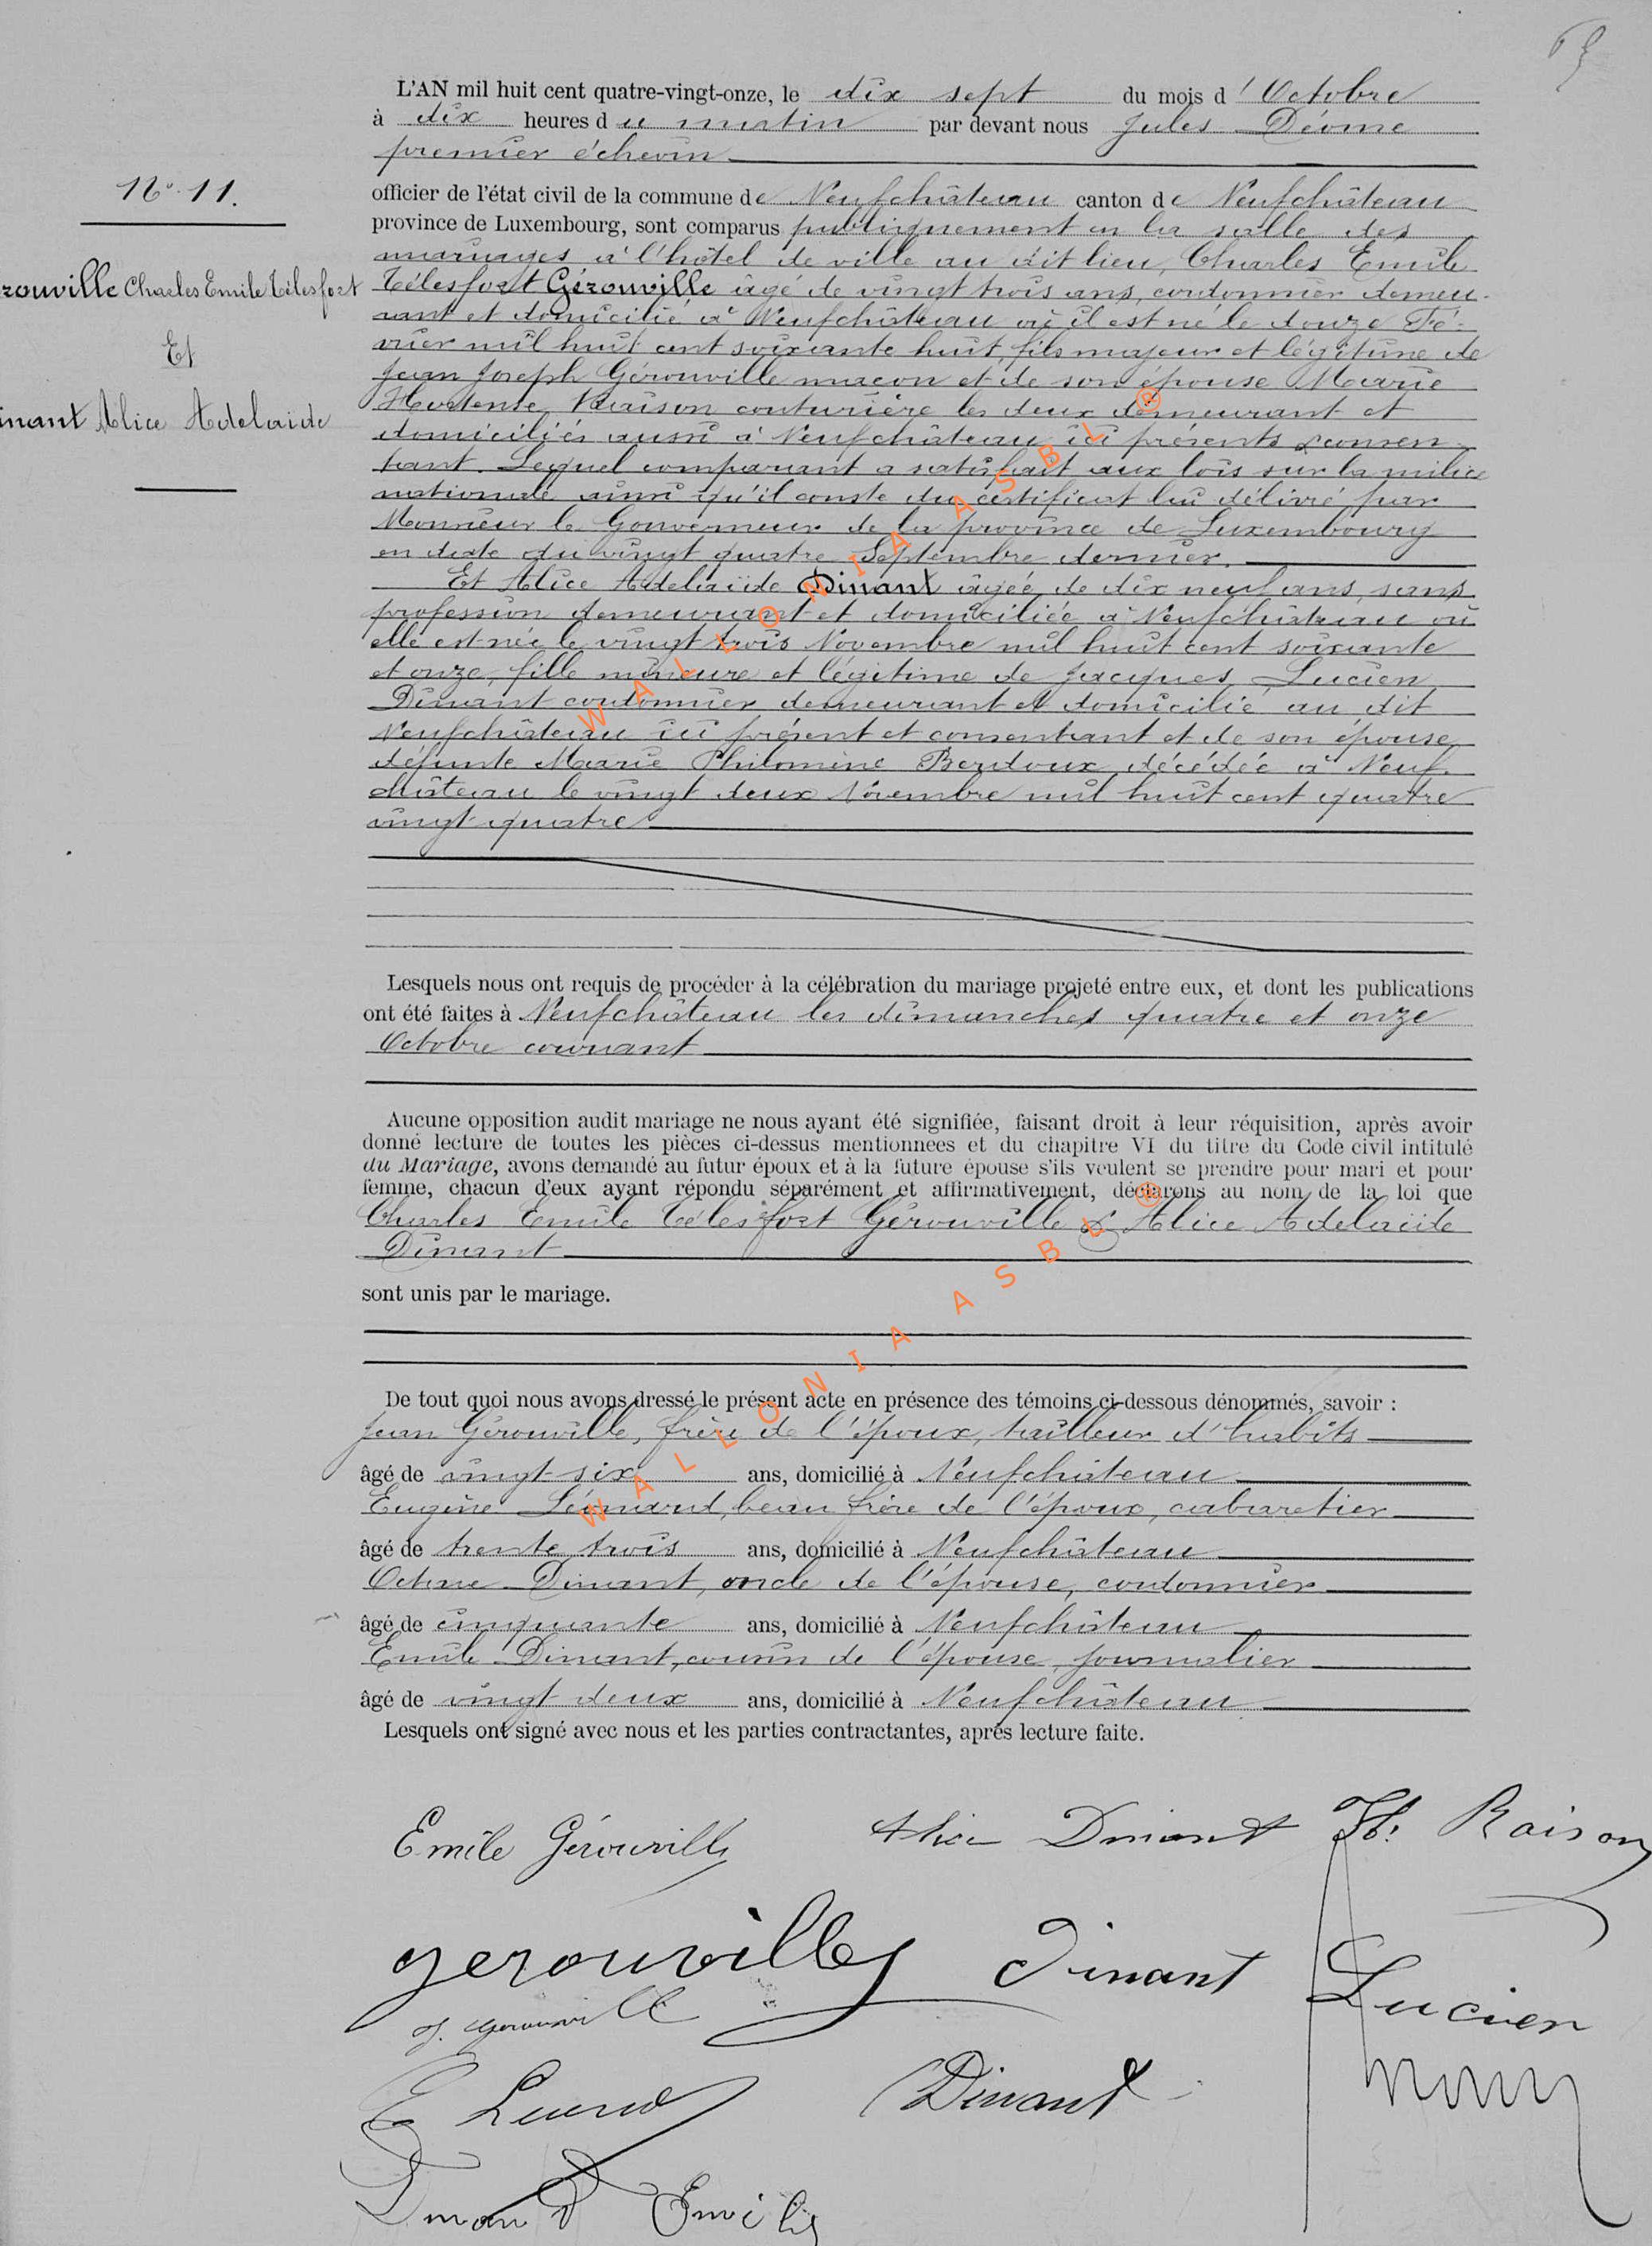 L'AN mil huit cent quatre-vingt-onze, le dix sept du mois d'Octobre
à dix heures du matin par devant nous Jules Déome
premier échevin
officier de l'état civil de la commune de Neufchâteau canton de Neufchâteau
province de Luxembourg, sont comparus publiquement en la salle des
mariages à l'hôtel de ville au dit lieu, Charles Emile
Télesfort Gérouville âgé de vingt trois ans, cordonnier demeu-
rant et domicilié à Neufchâteau où il est né le douze Fé-
vrier mil huit cent soixante huit, fils majeur et légitime de
Jean Joseph Gérouville maçon et de son épouse Marie
Hortense Raison couturière les deux demeurant et
domiciliés aussi à Neufchâteau ici présents & consen-
tant. Lequel comparant a satisfait aux lois sur la milice
nationale ainsi qu'il conste du certificat lui délivré par
Monsieur le Gouverneur de la province de Luxembourg
en date du vingt quatre Septembre dernier.
Et Alice Adelaïde Dinant âgée de dix neuf ans, sans
profession demeurant et domiciliée à Neufchâteau où
elle est née le vingt trois Novembre mil huit cent soixante
et onze, fille mineure et légitime de Jacques Lucien
Dinant cordonnier demeurant et domicilié au dit
Neufchâteau ici présent et consentant et de son épouse
défunte Marie Philomène Bordoux décédée à Neuf-
château le vingt deux Novembre mil huit cent quatre
vingt quatre
Lesquels nous ont requis de procéder à la célébration du mariage projeté entre eux, et dont les publications
ont été faites à Neufchâteau les dimanches quatre et onze
Octobre courant
Aucune opposition audit mariage ne nous ayant été signifiée, faisant droit à leur réquisition, après avoir
donné lecture de toutes les pièces ci-dessus mentionnees et du chapitre VI du titre du Code civil intitulé
du Mariage, avons demandé au futur époux et à la future épouse s'ils veulent se prendre pour mari et pour
femme, chacun d'eux ayant répondu séparément et affirmativement, déclarons au nom de la loi que
Charles Emile Télesfort Gérouville & Alice Adelaïde
Dinant
sont unis par le mariage.
De tout quoi nous avons dressé le présent acte en présence des témoins ci-dessous dénommés, savoir :
Jean Gérouville, frère de l'époux, tailleur d'habits
âgé de vingt-six ans, domicilié à Neufchâteau
Eugène Léonard, beau frère de l'époux, cabaretier
âgé de trente trois ans, domicilié à Neufchâteau
Octave Dinant, oncle de l'épouse, cordonnier
âgé de cinquante ans, domicilié à Neufchâteau
Emile Dinant, cousin de l'épouse, journalier
âgé de vingt deux ans, domicilié à Neufchâteau
Lesquels ont signé avec nous et les parties contractantes, après lecture faite.
No 11.
rouville Charles Emile Télesfort
Et
inant Alice Adelaide
Emile Gérouville Alice Dinant H. Raison
gerouville Dinant Lucien
J. Gerouville
E Leonard Dinant
Dinant Emile
WALLONIA ASBL ®
WALLONIA ASBL ®